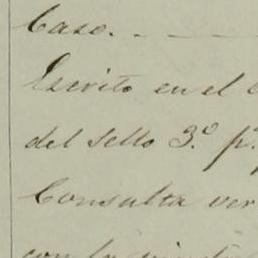 Caso. - - -
Escrito en el
del sello 3.º p.
Consulta ver
con la